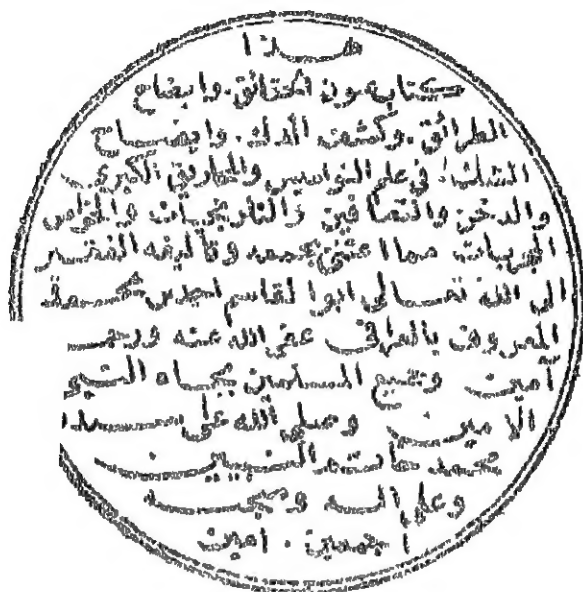 هذا
كتاب عيون الحقائق وايضاح
الطرائق وكشف الدك وايضاح
الشك في علم النواميس والمخاريق الكبرى
والدخن والتعافين والنارنجيات والخواص
المجربات مما اعتنى بجمعه وتأليفه الفقير
الى الله تعالى ابوا لقاسم احمد بن محمد
المعروف بالعراقى عفى الله عنه ورحمه
آمين وجميع المسلمين بجاه النبي
الامين وصلى الله على سيدنا
محمد خاتم النبيين
وعلى اله وصحبه
اجمعين . امين